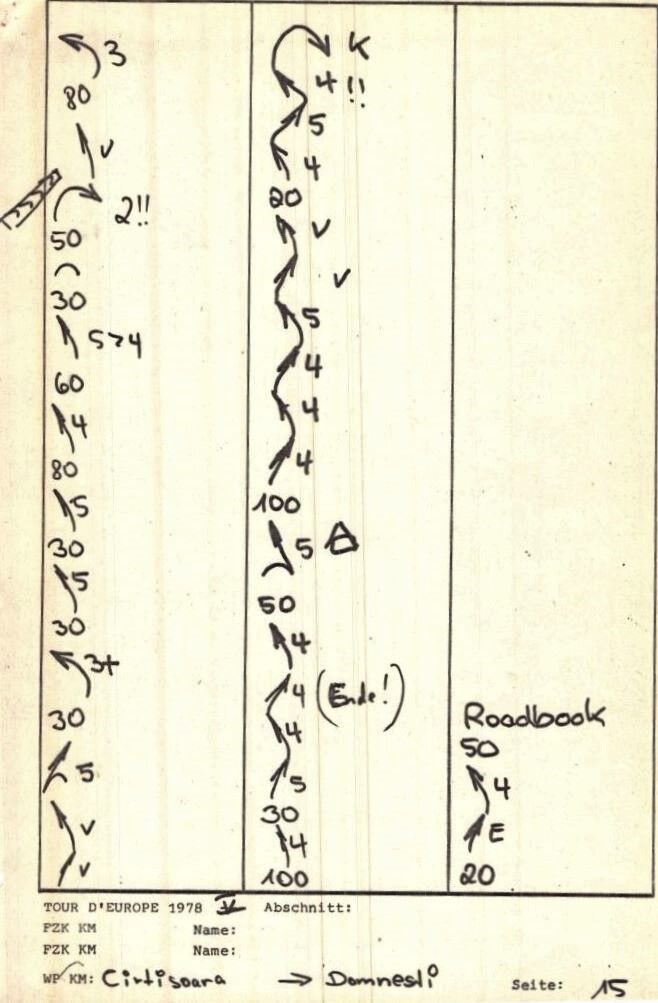 3
80
V
2!!
50
30
5>4
60
4
80
5
30
5
30
3+
30
5
V
V
K
4 !!
5
4
20
V
V
5
4
4
4
100
5
50
4
4 (Ende!)
4
5
30
4
100
Roadbook
50
4
E
20
TOUR D'EUROPE 1978 V Abschnitt:
FZK KM Name:
FZK KM Name:
WP KM: Cirtisoara → Domnesti
Seite: 15